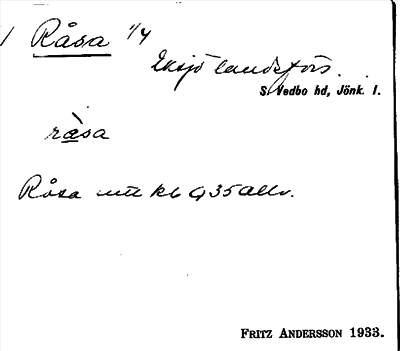 Råsa 1/4
Eksjö landsförs.
S. Vedbo hd, Jönk. l.
ràsa
Råsa utt kb G35 allv.
FRITZ ANDERSSON 1933.